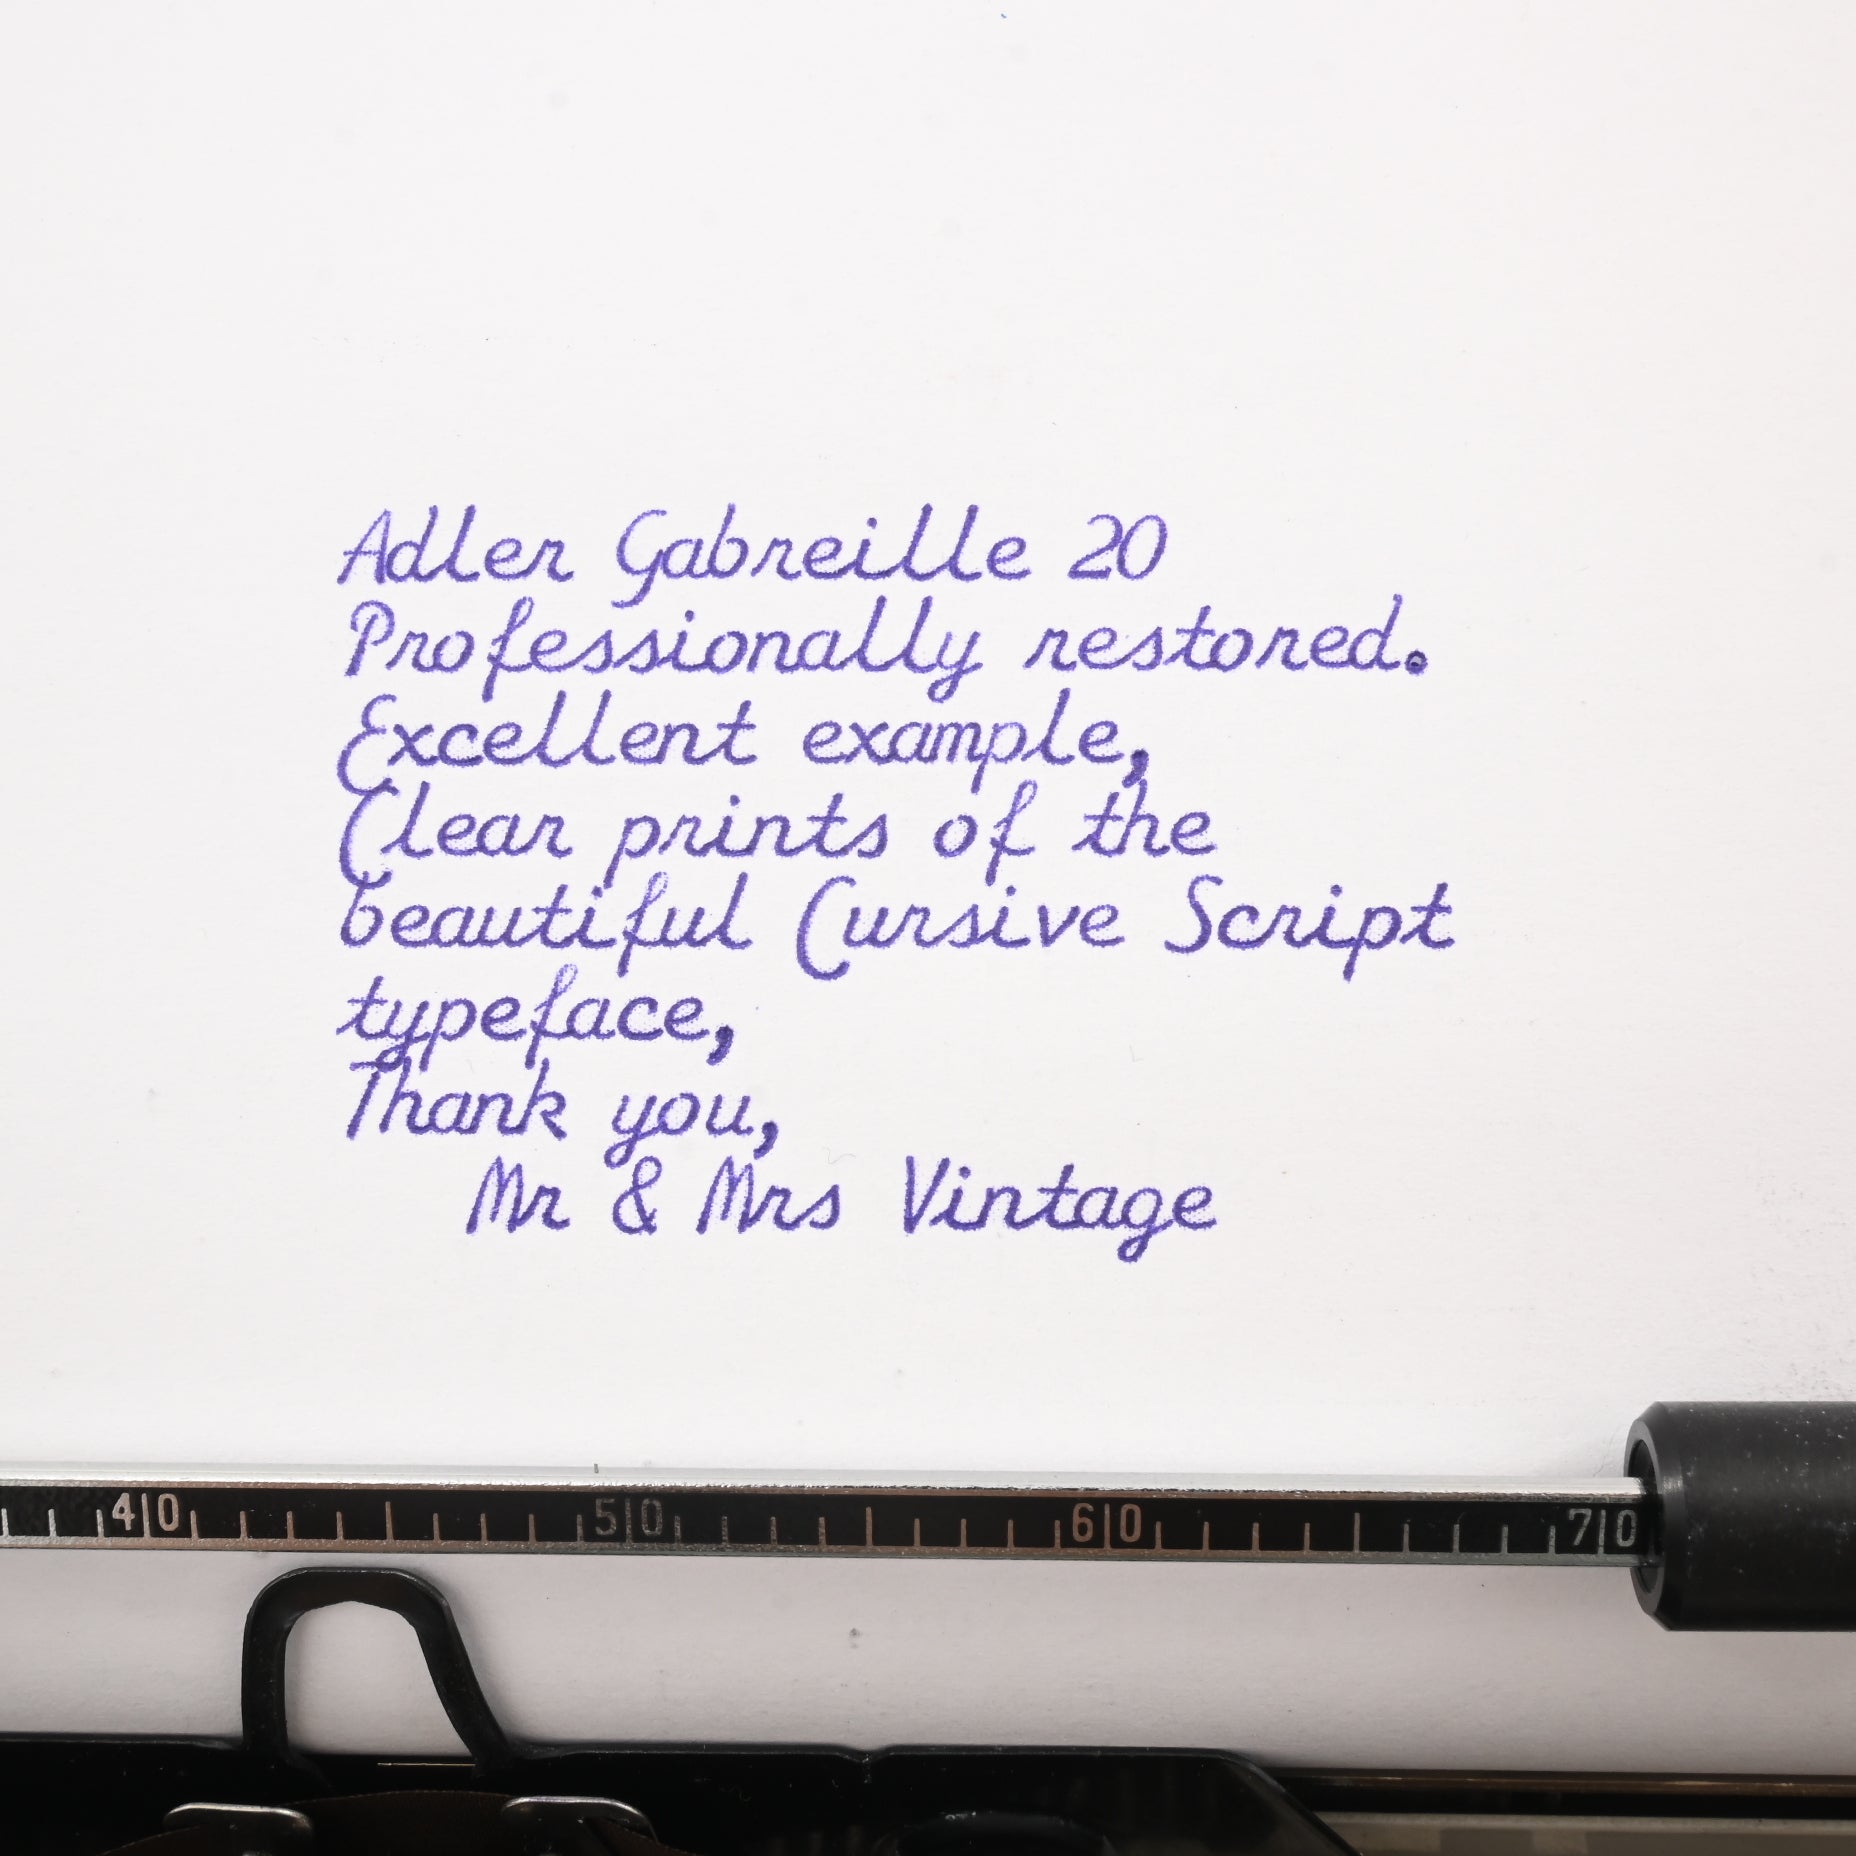 Adler Gabreille 20
Professionally restored.
Excellent example,
Clear prints of the
beautiful Cursive Script
typeface,
Thank you,
Mr & Mrs Vintage
40 50 60 70